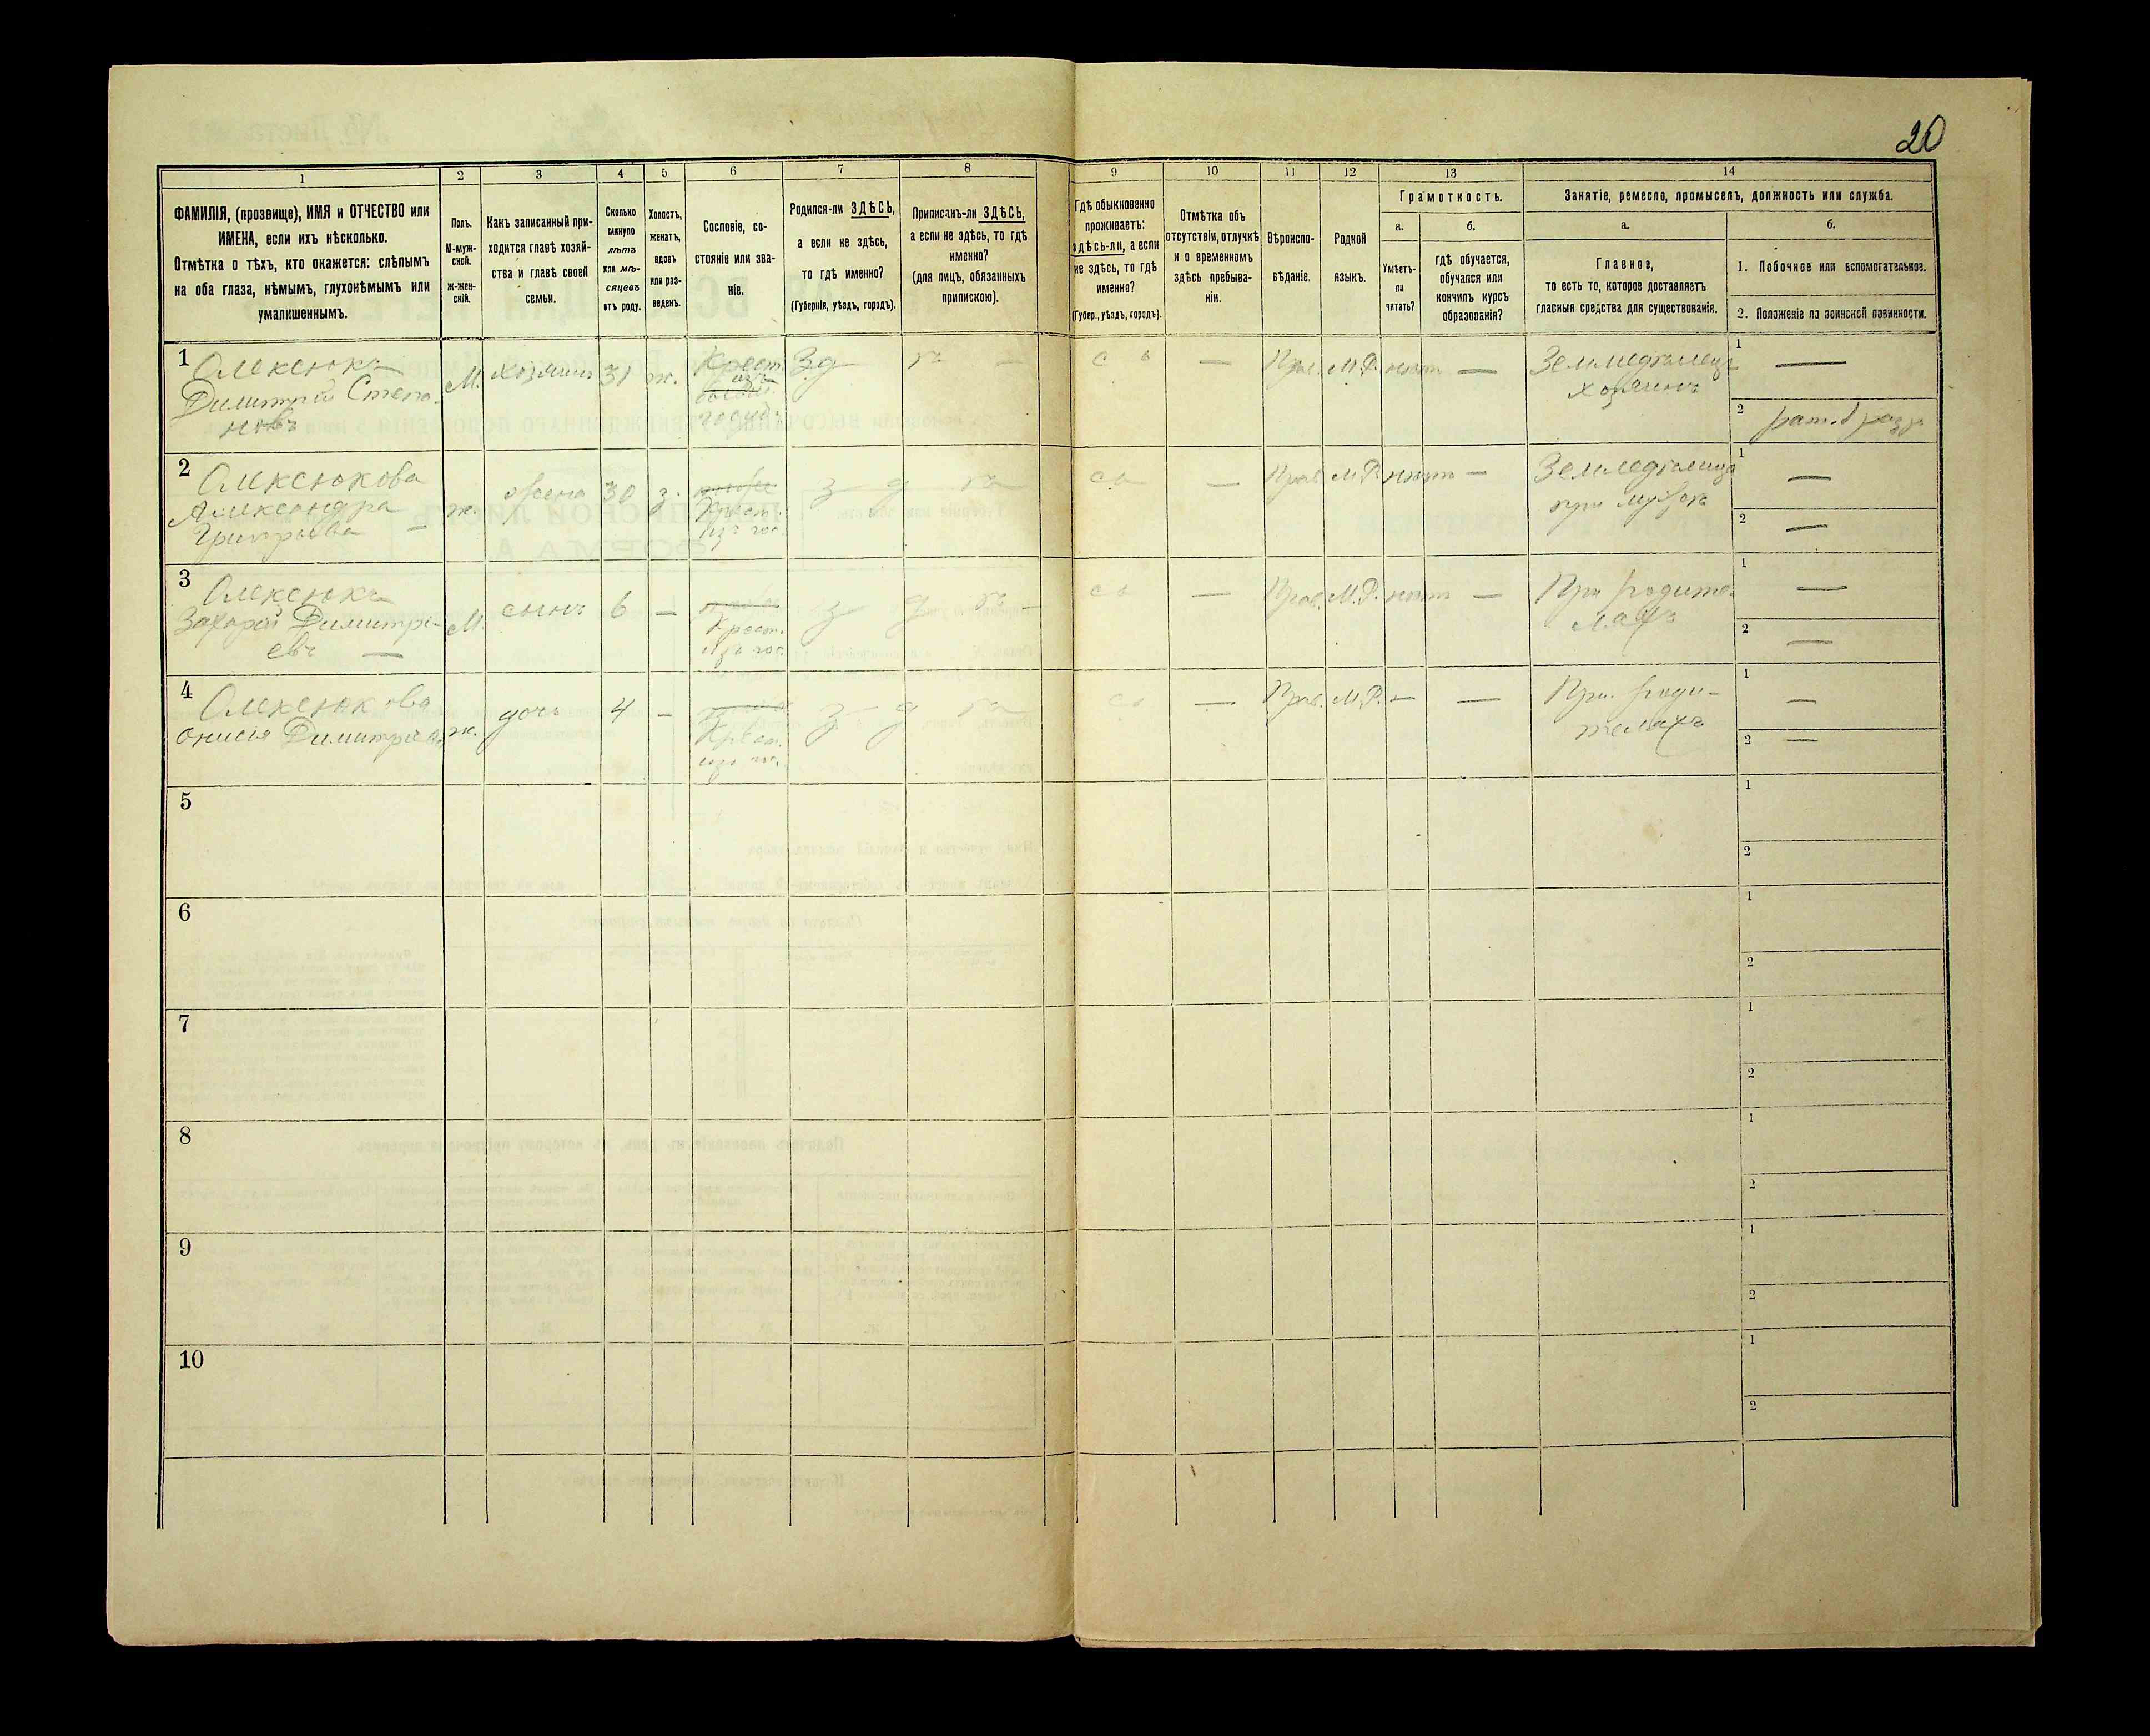 20
1
ФАМИЛІЯ, (прозвище), ИМЯ и ОТЧЕСТВО или
ИМЕНА, если ихъ нѣсколько.
Отмѣтка о тѣхъ, кто окажется: слѣпымъ
на оба глаза, нѣмымъ, глухонѣмымъ или
умалишеннымъ.
2
Полъ.
М-муж-
ской.
Ж-жен-
скій.
3
Какъ записанный при-
ходится главѣ хозяй-
ства и главѣ своей
семьи.
4
Сколько
минуло
лѣтъ
или мѣ-
сяцевъ
отъ роду.
5
Холостъ,
женатъ,
вдовъ
или раз-
веденъ.
6
Сословіе, со-
стояніе или зва-
ніе.
7
Родился-ли ЗДѢСЬ,
а если не здѣсь,
то гдѣ именно?
(Губернія, уѣздъ, городъ).
8
Приписанъ-ли ЗДѢСЬ,
а если не здѣсь, то гдѣ
именно?
(для лицъ, обязанныхъ
припискою).
9
Гдѣ обыкновенно
проживаетъ:
здѣсь-ли, а если
не здѣсь, то гдѣ
именно?
(Губер., уѣздъ, городъ).
10
Отмѣтка объ
отсутствіи, отлучкѣ
и о временномъ
здѣсь пребыва-
ніи.
11
Вѣроиспо-
вѣданіе.
12
Родной
языкъ.
13
Грамотность.
а.
Умѣетъ-
ли
читать?
б.
гдѣ обучается,
обучался или
кончилъ курсъ
образованія?
14
Занятіе, ремесло, промыселъ, должность или служба.
а.
Главное,
то есть то, которое доставляетъ
главныя средства для существованія.
б.
1. Побочное или вспомогательное.
2. Положеніе по воинской повинности.
1
Олексюкъ
Димитрій Степа-
новъ
М.
хозяинъ
31
ж.
Крест.
изъ
госуд.
Зд
съ
—
с ь
—
Прав.
М.Р.
нѣтъ
—
Земледѣлецъ
хозяинъ
1
—
2
рат. 1 разр
2
Олексюкова
Александра
—
ж.
жена
30
з.
Крест.
изъ гос.
з д
съ
сь
—
Прав.
М.Р.
нѣтъ
—
Земледѣлица
при мужѣ
1
—
2
—
3
Олексюкъ
Захарій Димитрі-
евъ —
М.
сынъ
6
—
Крест.
изъ гос.
з д
съ —
сь
—
Прав.
М.Р.
нѣтъ
—
При родите-
ляхъ
1
—
2
—
4
Олексюкова
Онисія Димитріева
ж.
дочь
4
—
Крест.
изъ гос.
з д
съ
сь
—
Прав.
М.Р.
—
—
При роди-
теляхъ
1
—
2
—
5
1
2
6
1
2
7
1
2
8
1
2
9
1
2
10
1
2